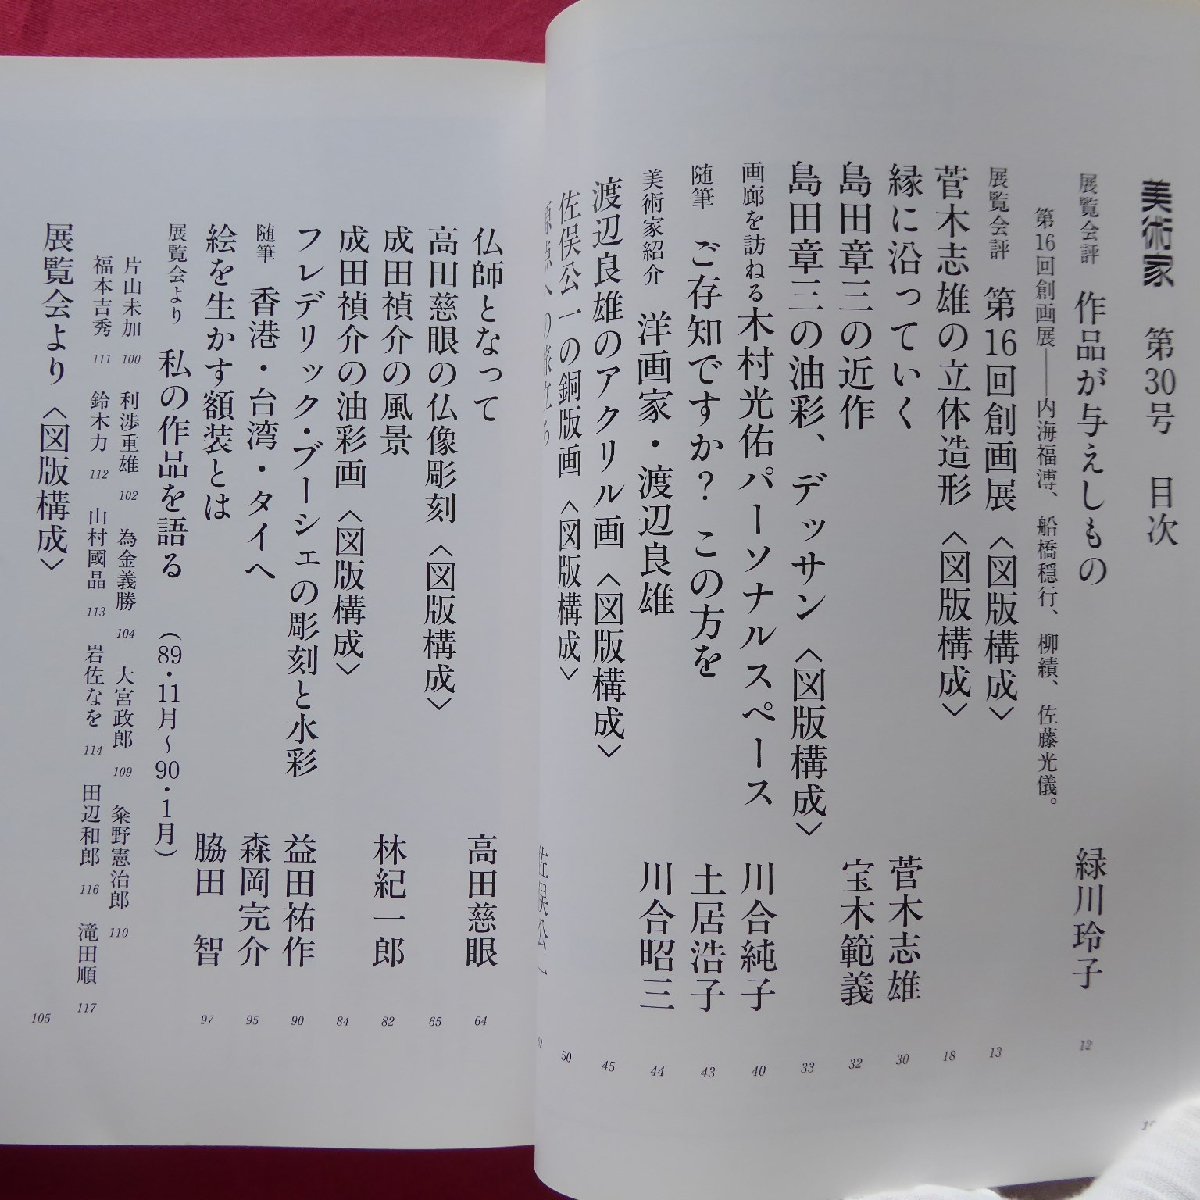 美術家 第30号 目次
展覧会評 作品が与えしもの 緑川玲子 12
第16回創画展――内海福溥、船橋穏行、柳績、佐藤光儀。
展覧会評 第16回創画展〈図版構成〉 13
菅木志雄の立体造形〈図版構成〉 18
縁に沿っていく 菅木志雄 30
島田章三の近作 宝木範義 32
島田章三の油彩、デッサン〈図版構成〉 33
画廊を訪ねる 木村光佑パーソナルスペース 川合純子 40
随筆 ご存知ですか？この方を 土居浩子 43
美術家紹介 洋画家・渡辺良雄 川合昭三 44
渡辺良雄のアクリル画〈図版構成〉 45
佐俣公一の銅版画〈図版構成〉 50
佐俣公一
仏師となって 高田慈眼 64
高田慈眼の仏像彫刻〈図版構成〉 65
成田禎介の風景 林紀一郎 82
成田禎介の油彩画〈図版構成〉 84
フレデリック・ブーシェの彫刻と水彩 益田祐作 90
随筆 香港・台湾・タイへ 森岡完介 95
絵を生かす額装とは 脇田 智 97
展覧会より 私の作品を語る （89・11月～90・1月）
片山未加 100 利渉重雄 102 為金義勝 104 大宮政郎 109 粂野憲治郎 110
福本吉秀 111 鈴木力 112 山村國晶 113 岩佐なを 114 田辺和郎 116 滝田順 117
展覧会より〈図版構成〉 105